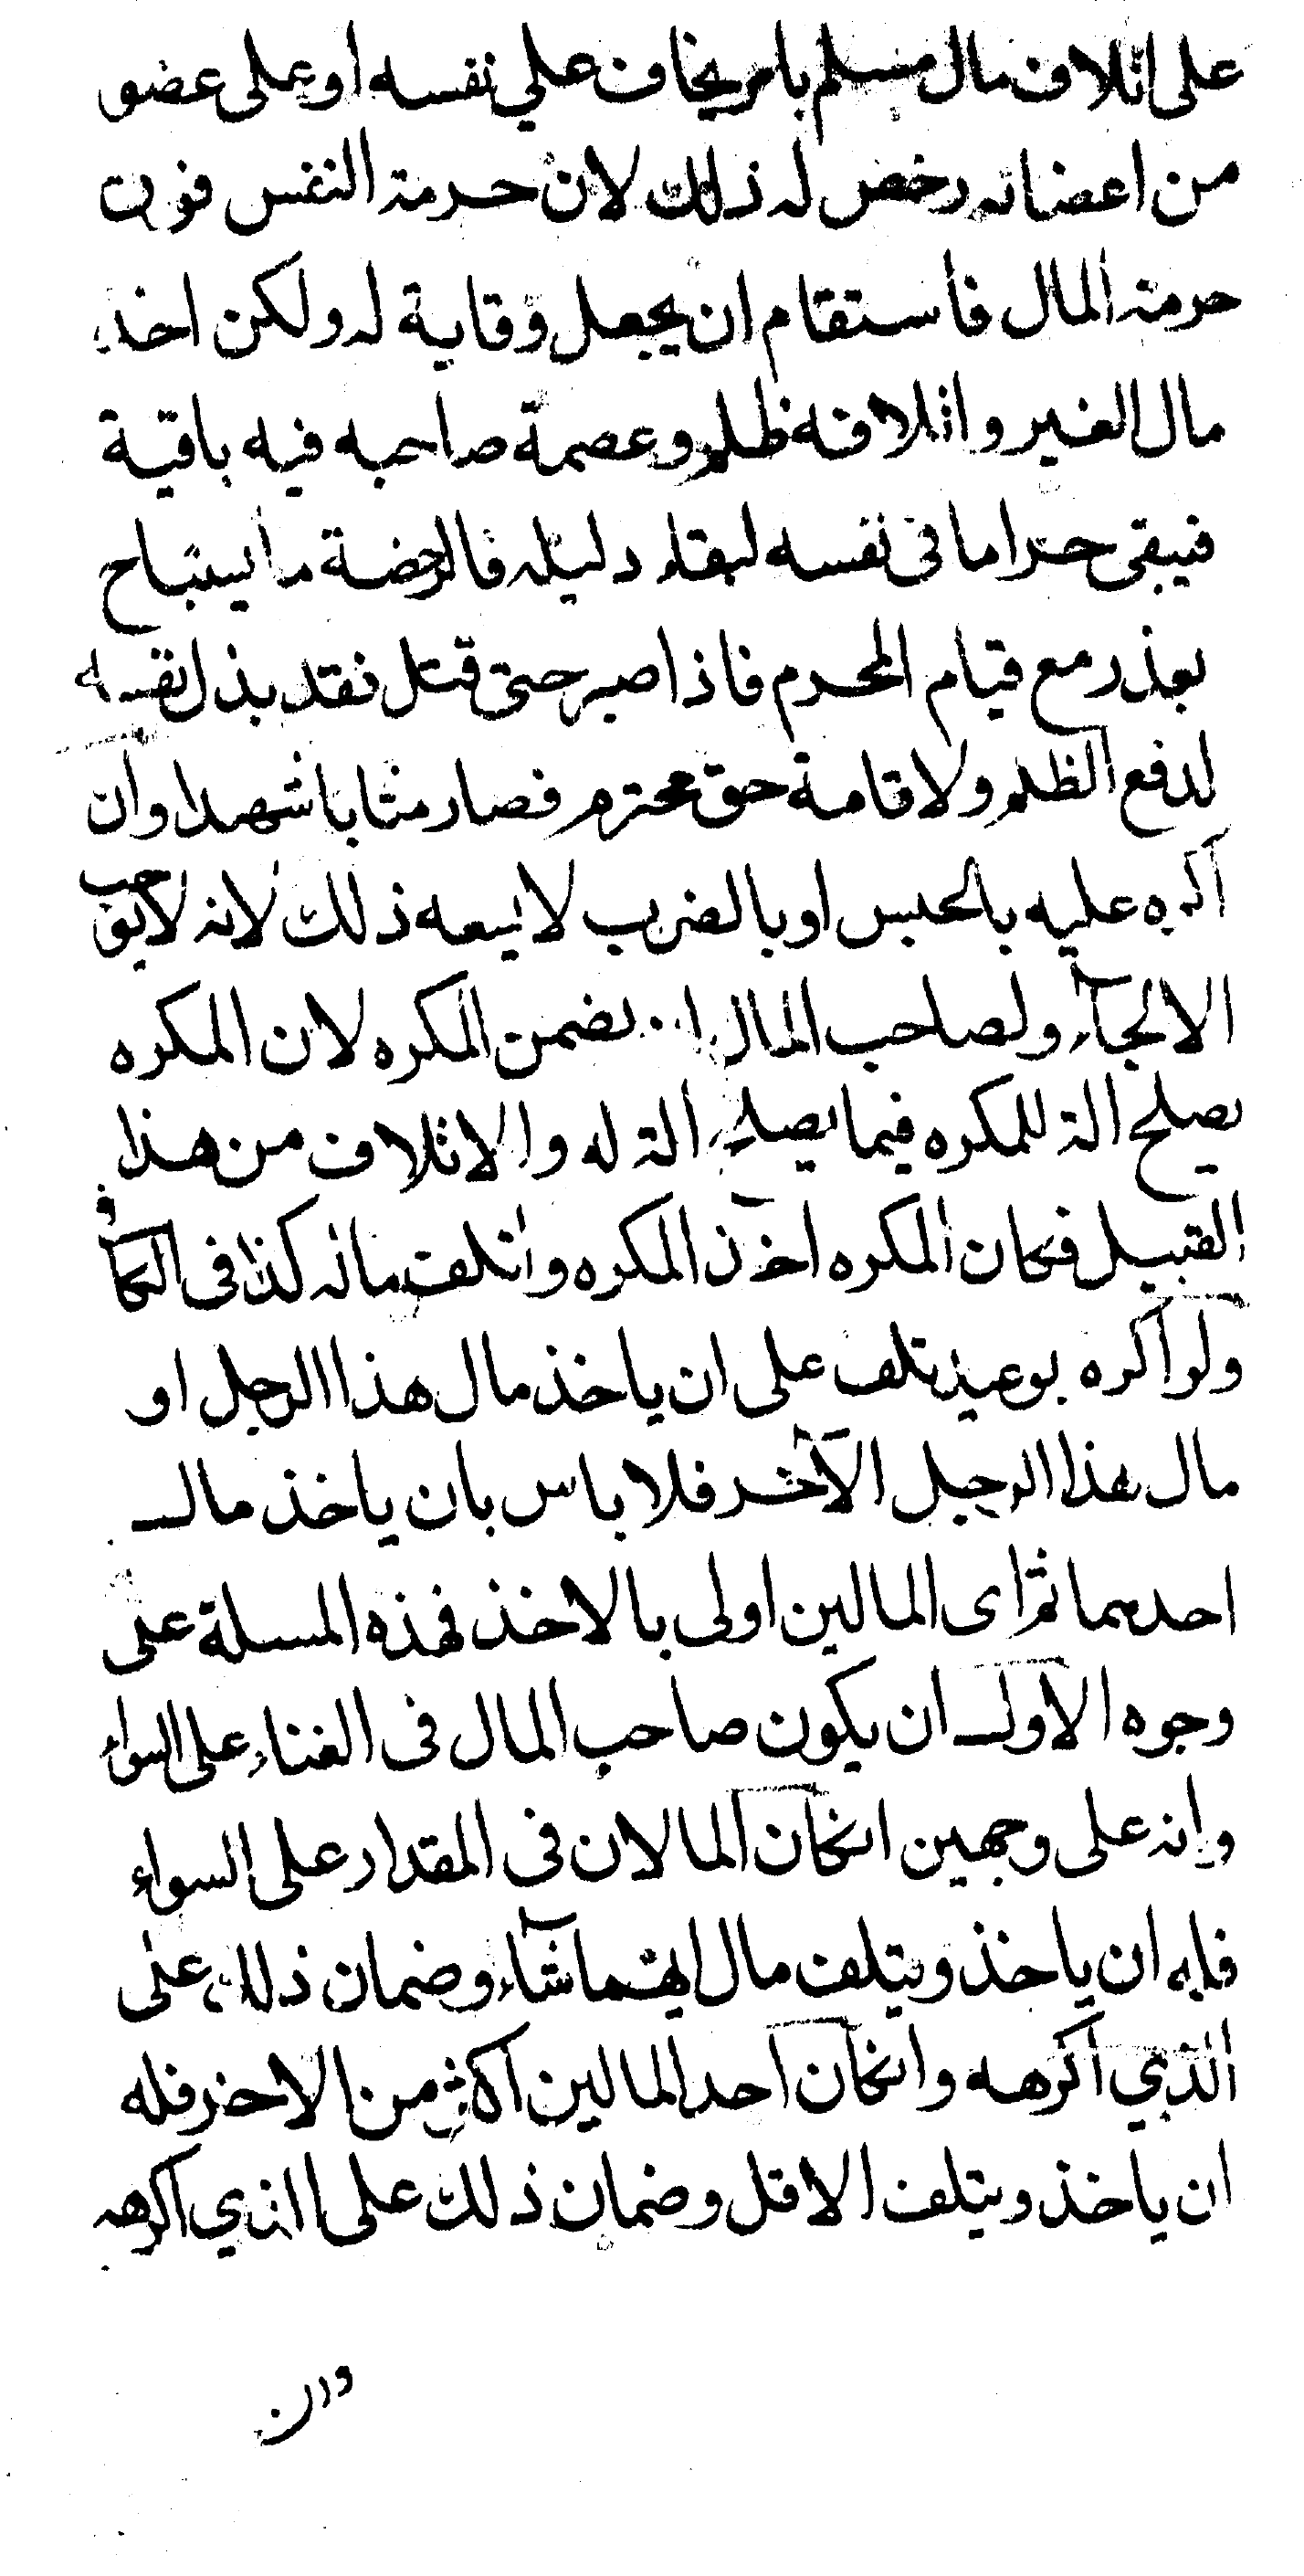 على اتلاف مال مسلم بامر يخاف علي نفسه او على عضو
من اعضائه رخص له ذلك لان حرمة النفس فوق
حرمة المال فاستقام ان يجعل وقاية له ولكن اخذ
مال الغير واتلافه ظلم وعصمة صاحبه فيه باقية
فيبقى حراما فى نفسه لبقاء دليله فالرخصة ما يستباح
بعذر مع قيام المحرم فاذا صبر حتى قتل فقد بذل نفسه
لدفع الظلم ولاقامة حق محترم فصار مثابا شهيدا وان
اكره عليه بالحبس او بالضرب لا يسعه ذلك لانه لا يوجب
الالجآء ولصاحب المال ان يضمن المكره لان المكره
يصلح الة للمكره فيما يصلح الة له والاتلاف من هذا
القبيل فكان المكره اخذ المكره واتلف ماله كذا فى الكافى
ولو اكره بوعيد تلف على ان ياخذ مال هذا الرجل او
مال هذا الرجل الآخر فلا باس بان ياخذ مال
احدهما ثم اى المالين اولى بالاخذ فهذه المسلة على
وجوه الاول ان يكون صاحب المال فى الغناء على السواء
وانه على وجهين انكان المالان فى المقدار على السواء
فله ان ياخذ ويتلف مال ايهما شآء وضمان ذلك على
الذي اكرهه وانكان احد المالين اكثر من الاخر فله
ان ياخذ ويتلف الاقل وضمان ذلك على الذي اكرهه
وان